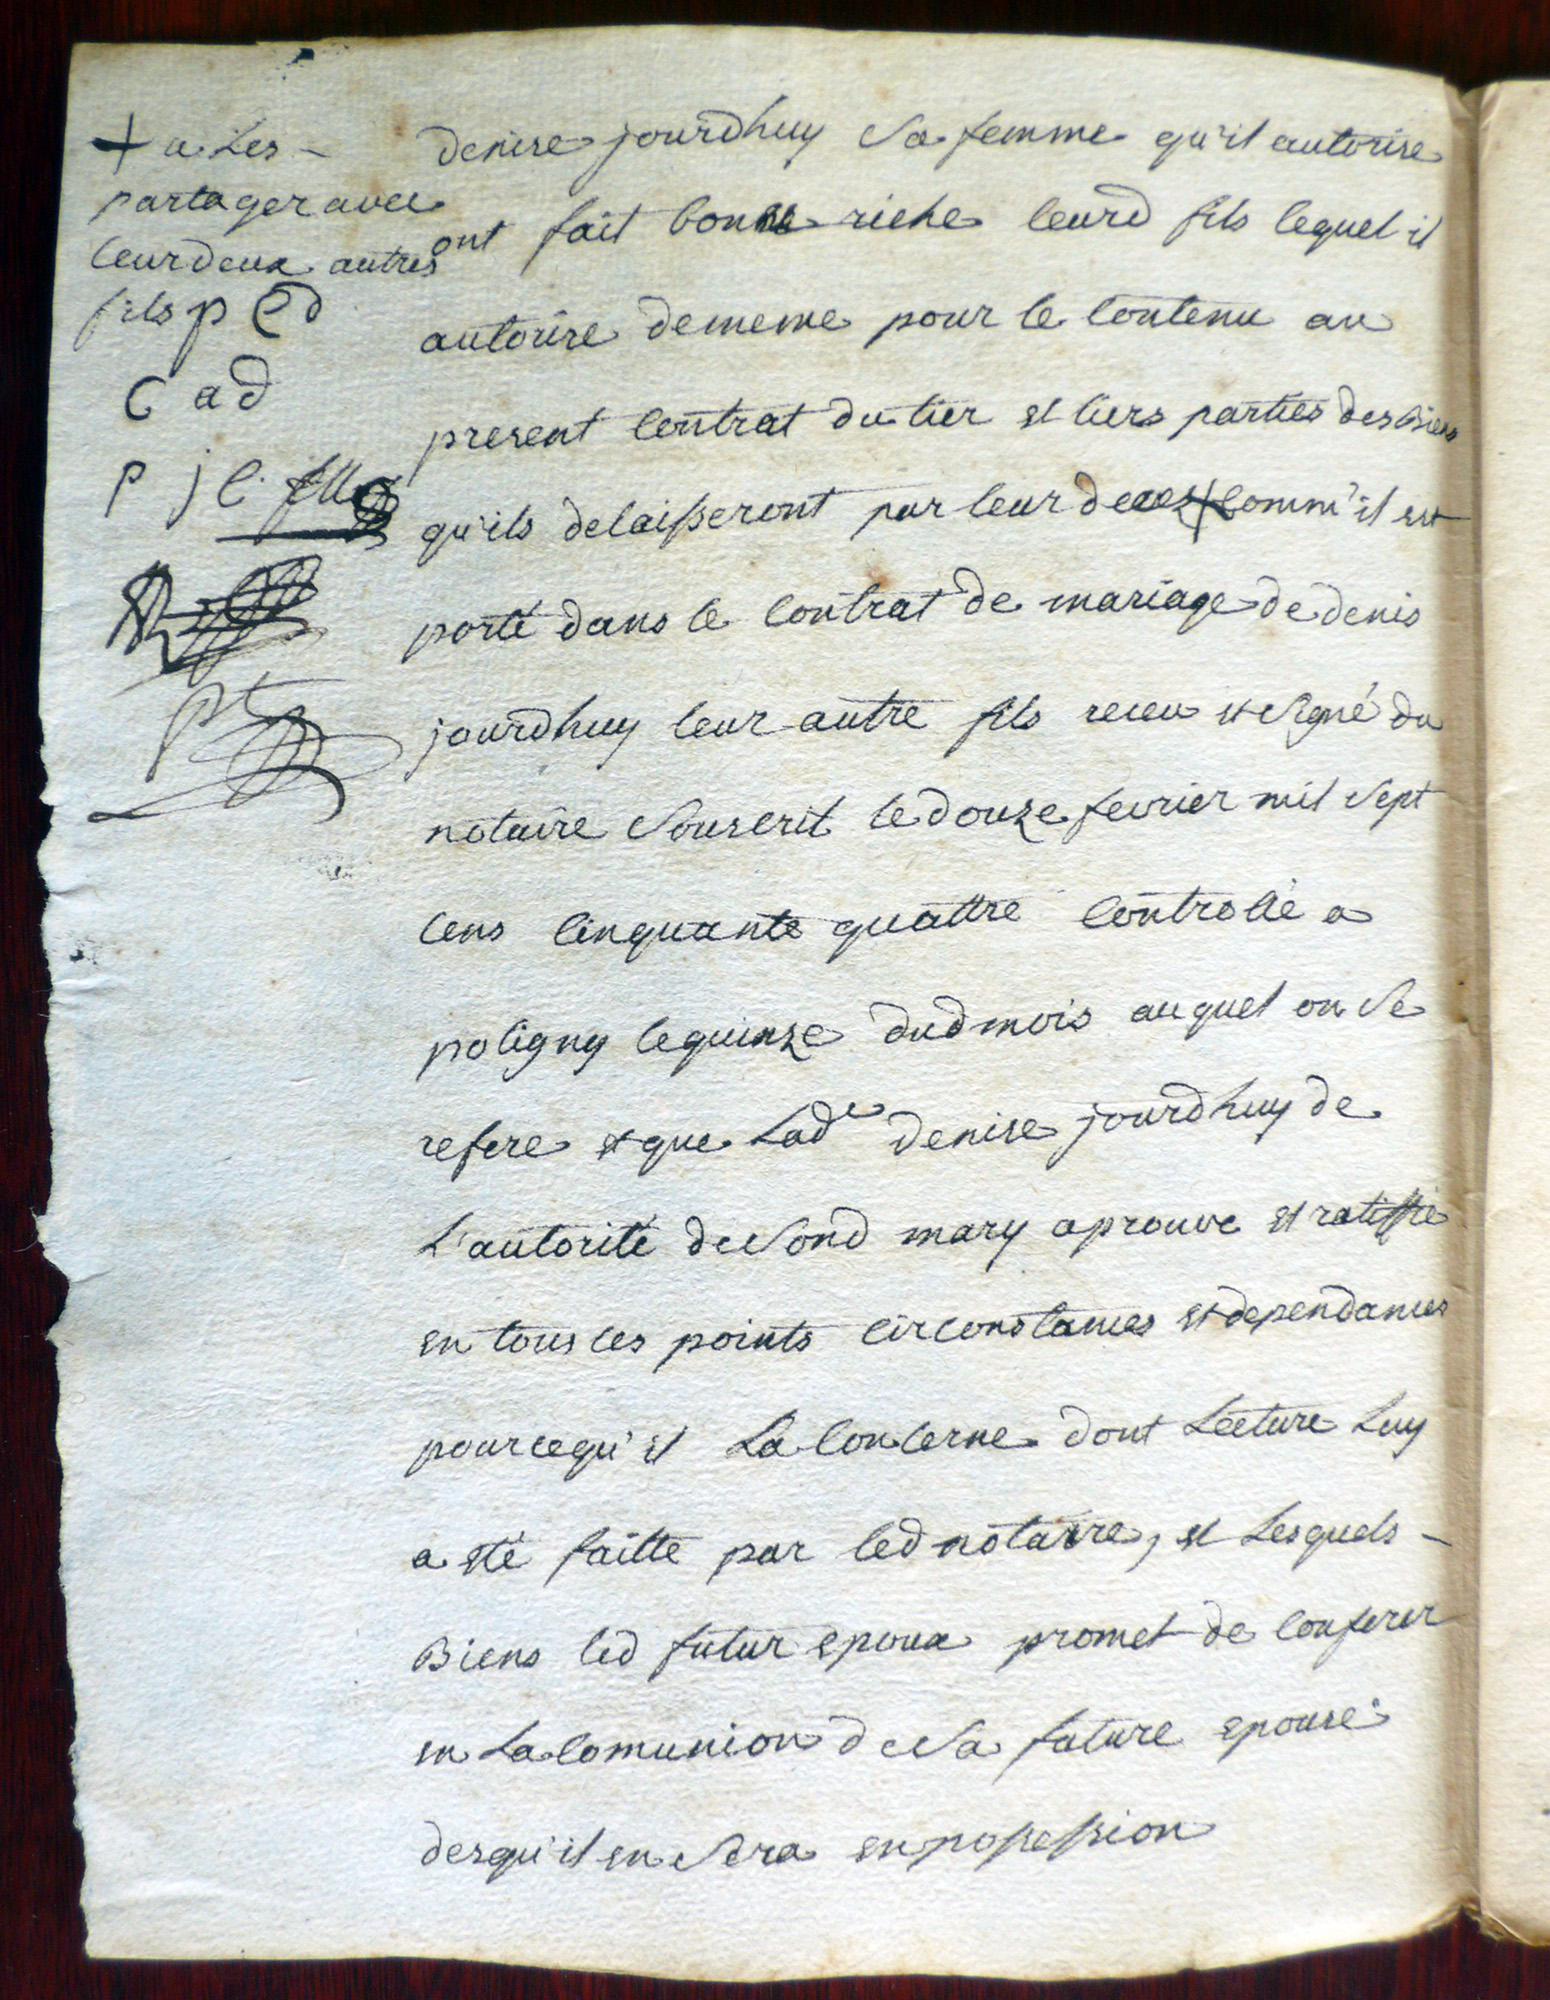 + a Les -
partager avec
leur deux autres
fils p E d
C a d
p j C
denise jourdhuy sa femme qu'il autorise
ont fait bon et riche leurd fils lequel il
autorise de meme pour le contenu au
present contrat du tier et tiers parties des Biens
qu'ils delaisseront par leur deces + comm'il est
porté dans le contrat de mariage de denis
jourdhuy leur autre fils receu et signé du
notaire souscrit le douze fevrier mil sept
cens cinquante quattre controllé a
poligny le quinze dud mois auquel on se
refere et que Lad^e denise jourdhuy de
L'autorité de sond mary aprouve et ratiffie
en tous ces points circonstances et dependances
pour ce qu'il La concerne dont Lecture Luy
a eté faitte par led notaire, et Lesquels -
Biens led futur epoux promet de conferer
en La comunion de sa future epouse
des qu'il en sera en possession